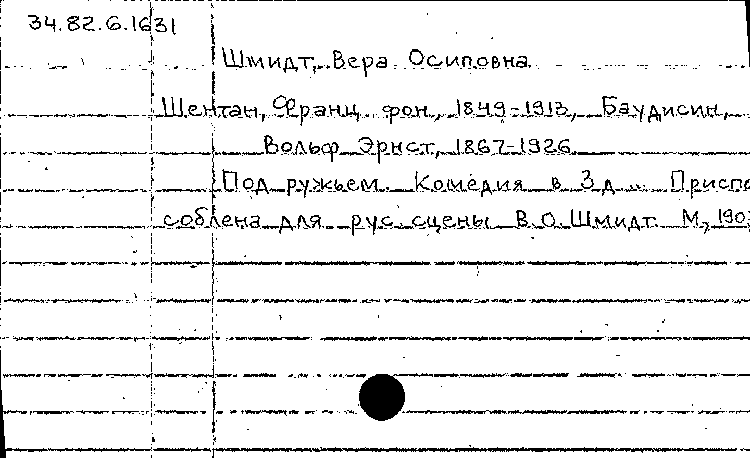 34.82.6.1631
Шмидт, Вера Осиповна
Шентан, Франц фон, 1849-1913, Баудисин,
Вольф Эрнст, 1867-1926
Под ружьем. Комедия в 3 д... Приспо
соблена для рус. сцены В.О. Шмидт. М., 190